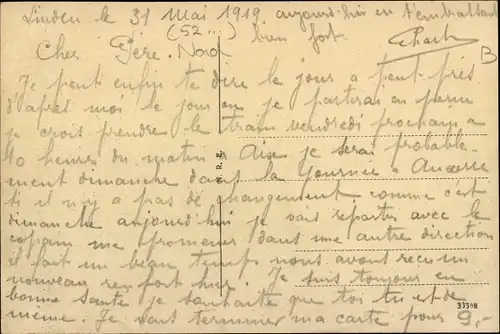 Linden le 31 Mai 1919. aujourd'hui en t'embrassant
(52...) bien fort.
Cher Père. Charles
Je peut enfin te dire le jour a peut près
d'après moi le jour ou je partirai en perm
je crois prendre le train vendredi prochain a
10 heures du matin a Aix je serai probable-
ment dimanche dans la journée a Auxerre
si il n'y a pas de changement comme c'est
dimanche aujourd'hui je vais repartir avec le
copain me promener dans une autre direction
il fait un beau temps nous avons recu un
nouveau renfort hier. Je suis toujours en
bonne santé je souhaite que toi tu et de
même. Je vais terminer ma carte pour
B
N. R. M.
33508
9,-